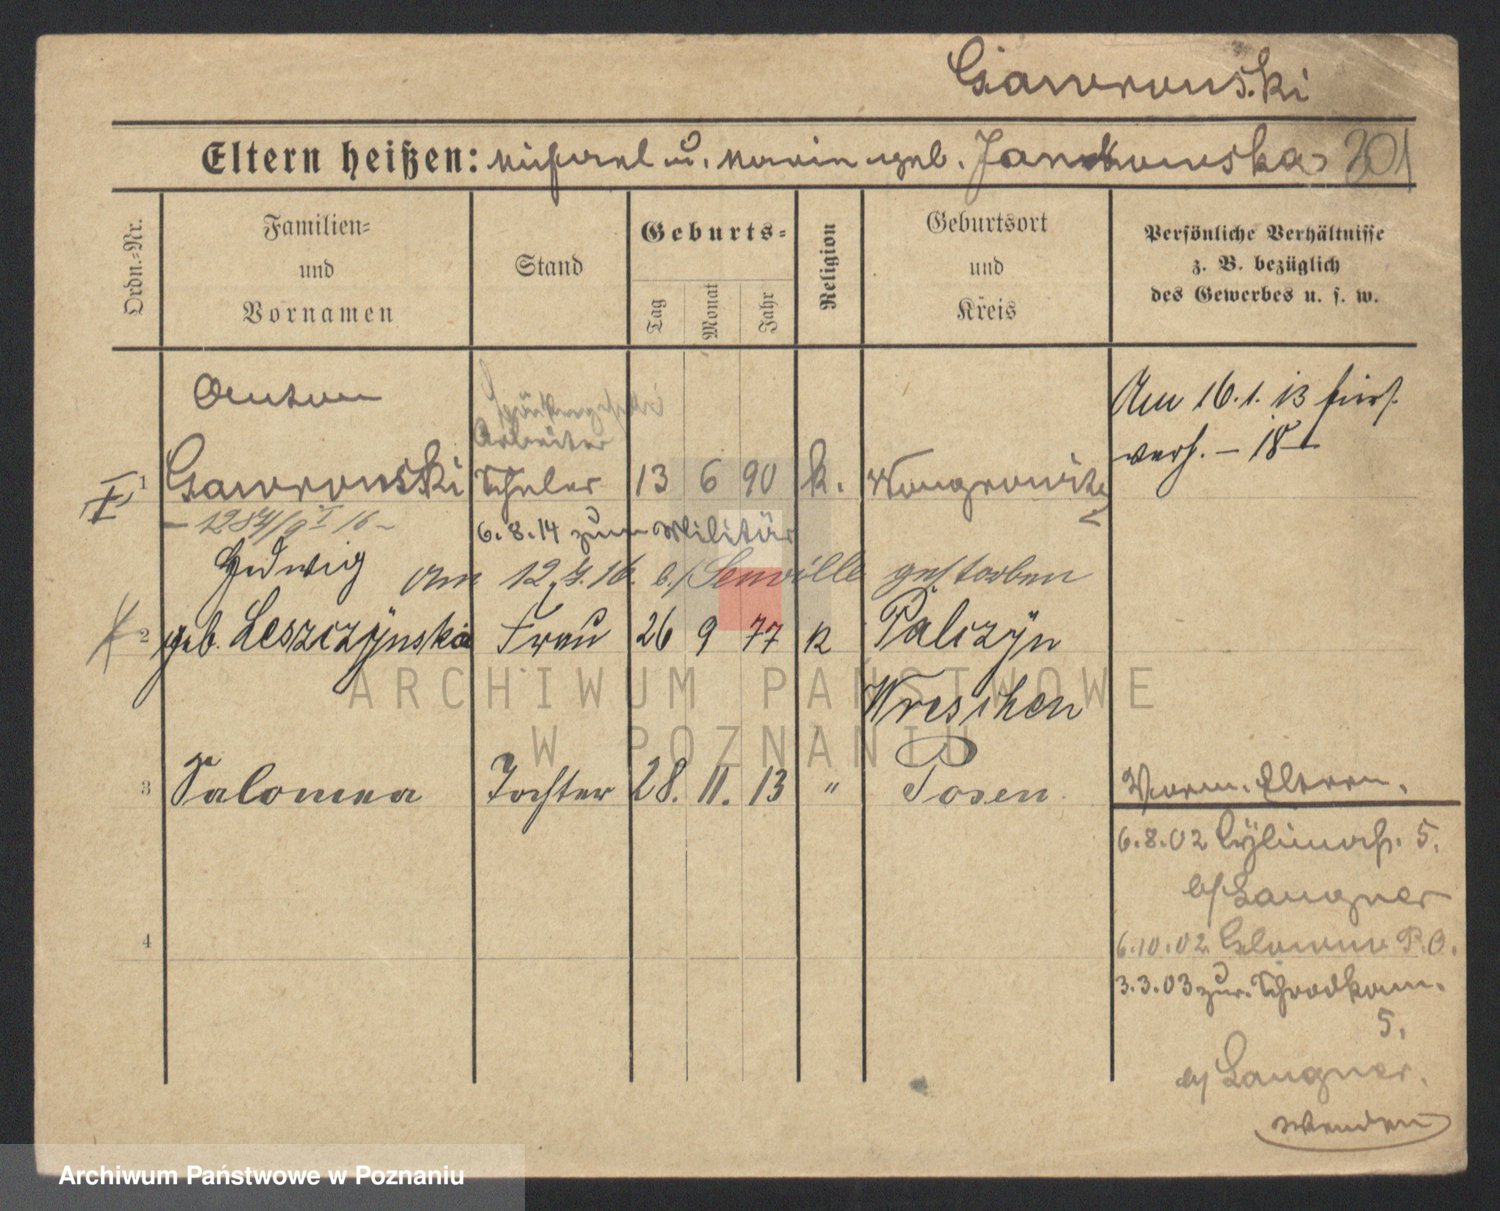 Gawronski
Eltern heißen: Michael u. Maria geb. Jankowska 201
Ordn.=Nr.
Familien=
und
Vornamen
Stand
Geburts=
Tag
Monat
Jahr
Religion
Geburtsort
und
Kreis
Persönliche Verhältnisse
z. B. bezüglich
des Gewerbes u. s. w.
Anton
Arbeiter
1 Gawronski Schüler 13 6 90 k. Wongrowitz
Am 16.1.13
verh. – 18 –
6.8.14 zum Militär
Hedwig
Am 12.7.16. b/ gestorben
2 geb. Leszczÿnska Frau 26 9 77 k Palczÿn
Wreschen
3 Salomea Tochter 28. 11. 13 " Posen
4
Vorm. Eltern.
6.8.02 5.
b/ Langner
6.10.02 Glowno P.O.
3.3.03 zur.
5.
b/ Langner.
Wenden
ARCHIWUM PAŃSTWOWE
W POZNANIU
Archiwum Państwowe w Poznaniu